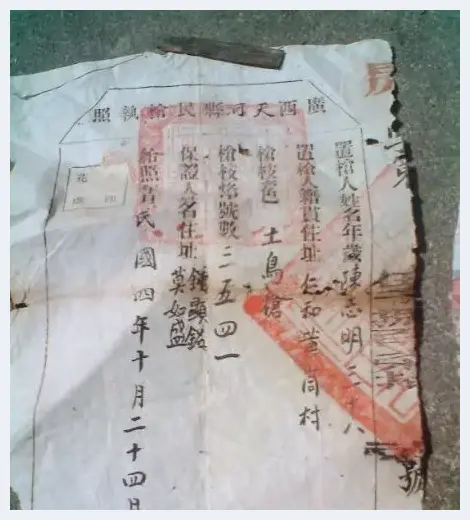 廣西天河縣民槍執照
置槍人姓名年歲陳志明三十八
置槍人籍貫住址仁和董筒村
槍枝色 土鳥槍
槍枝烙號數三五四一
保證人名住址
莫如盛
民國四年十月二十四日
號